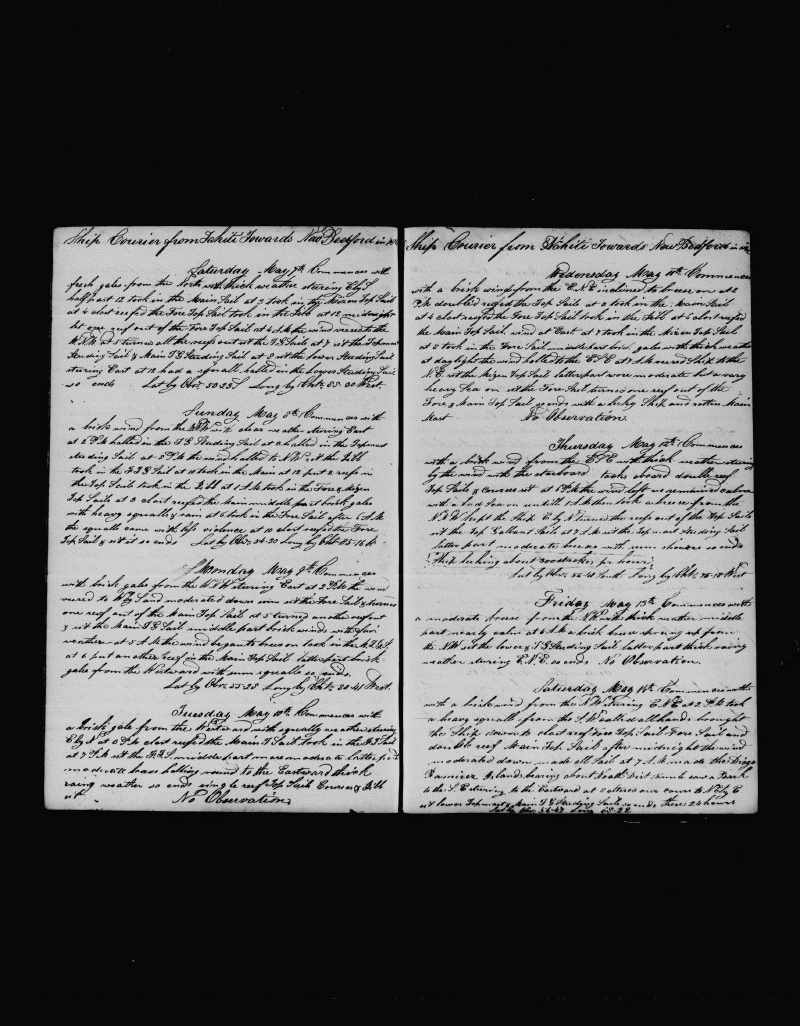 Ship Courier from Tahiti Towards New Bedford in
Saturday May 7th Commences with
fresh gales from the North with thick weather stering E by S
half past 12 took in the Main Sail at 2 took in the Main Top Sail
at 4 close reefed the Fore Top Sail took in the Jibb at 12 midnight
let one reef out of the Fore Top Sail at 4 A.M the wind veered to the
W.N.W at 5 turned all the reefs out set the T.G Sails at 7 set the Topmast
Studing Sail & Main T G Studing Sail at 9 set the lower Studing Sail
stering East at 12 had a squall halled in the Lower Studing Sail
so ends Lat by Obs. 53.25 S Long by Chr. 88.30 West.
Sunday May 8th Commences with
a brisk wind from the N.W with clear weather stering East
at 2 P.M halled in the T G Studing Sail at halled in the Topmast
Studing Sail at P.M the wind halled to N.W set the Jibb
took in the at 10 took in the Main at 12 put 2 reefs in
the Top Sail took in the Jibb at 1 A.M took in the Fore & Mizen
Top Sails at 3 close reefed the Main middle part brisk gales
with heavy squalls & rain at 6 took in the Fore Sail after 6 A.M
the squalls came with less violence at 10 close reefed the Fore
Top Sail & set it so ends Lat by Obs. 54.30 Long by Chr. 85.16 W.
Monday May 9th Commences
with brisk gales from the W.N.W stering East at 2 P.M the wind
veered to W by S and moderated down some set the Fore Sail & turned
one reef out of the Main Top Sail at 5 turned another reef out
& set the Main T G Sail middle part brisk winds with fair
weather at 5 A.M the wind began to breeze on took in the M.T.G.S.
at 6 put another reef in the Main Top Sail latter part brisk
gales from the Westward with some squalls so ends.
Lat by Obs. 55.23 Long by Chr. 80.41 West.
Tuesday May 10th Commences with
a brisk gale from the Westward with squally weather stering
E by N at P.M close reefed the Main T Sail took in the Sail
at 7 P.M set the middle part more moderate latter part
moderate breeze halling round to the Eastward thick
rainy weather so ends single reef Top Sails Courses & Jibb
set No Observation.
Ship Courier from Tahiti Towards New Bedford in
Wednesday May 11th Commences
with a brisk wind from the E.N.E inclined to breeze on at 2
P.M double reefed the Top Sails at took in the Main Sail
at 4 close reefed the Fore Top Sail took in the Jibb at 6 close reefed
the Main Top Sail wind at East at 7 took in the Mizen Top Sail
at 8 took in the Fore Sail middle part brisk gales with thick weather
at day light the wind halled to the E.S.E at 7 A.M weared Ship to the
N.E. set the Mizen Top Sail latter part more moderate but a very
heavy Sea on set the Fore Sail turned one reef out of the
Fore & Main Top Sail so ends with a leaky Ship and rotten Main
Mast. No Observation.
Thursday May 12th Commences
with a brisk wind from the E.S.E with thick weather stering
by the wind with the starboard tacks aboard double reef
Top Sails & Courses set at 6 P.M the wind left us remained calm
with a bad Sea on untill 1 A.M then took a breeze from the
N.N.W kept the Ship E by N turned the reefs out of the Top Sails
set the Top Gallant Sails at 7 A.M set the Top mast Studing Sail
latter part moderate breeze with some showers so ends
Ship leeking about 300 strokes per hour
Lat by Obs. 56.41 South Long by Chr. 75.18 West
Friday May 13th Commences with
a moderate breeze from the N.W with thick weather middle
part nearly calm at 6 A.M a brisk breeze sprung up from
the N.W set the lower & T G Studing Sail latter part thick rainy
weather stering E.N.E. so ends No Observation.
Saturday May 14th Commences with
with a brisk wind from the N.W stering E.N.E at 2 P.M took
a heavy squall from the S.W called all hands brought
the Ship down to close reef Fore Top Sail Fore Sail and
double reef Main Top Sail after midnight the wind
moderated down made all Sail at 7 A.M made the Diego
Ramirez Islands bearing about South saw a Bark
to the S.E stering to the Eastward at 8 altered our course to N.E by E
set lower Topmast & Main T G Studing Sails so ends these 24 hours
Lat by Obs. 56.27 Long 68.22